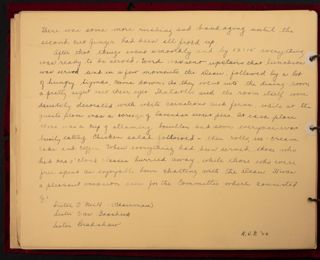 There was some more rushing and bandaging until the
second two guays had been all fixed up.
After that things went smoothly and by 12.15 everything
was ready to be served. Word was sent upstairs that luncheon
was served and in a few moments the Dean, followed by a lot
of hungry guests came down. As they went into the dining room
a pretty sight met their eyes. The table and the room itself were
daintily decorated with white carnations and ferns, while at the
guests place was a corsage of lavender sweet peas. At each place
there was a cup of steaming bouillon and soon everyone was
busily eating. Chicken salad followed - then rolls, ice cream
cake and coffee. When everything had been served those who
had one o'clock classes hurried away while those who were
free spent an enjoyable hour chatting with the Dean. It was
a pleasant occasion even for the Committee which consisted
of:
Sister O'Neill (Chairman)
Sister
Sister Bradshaw